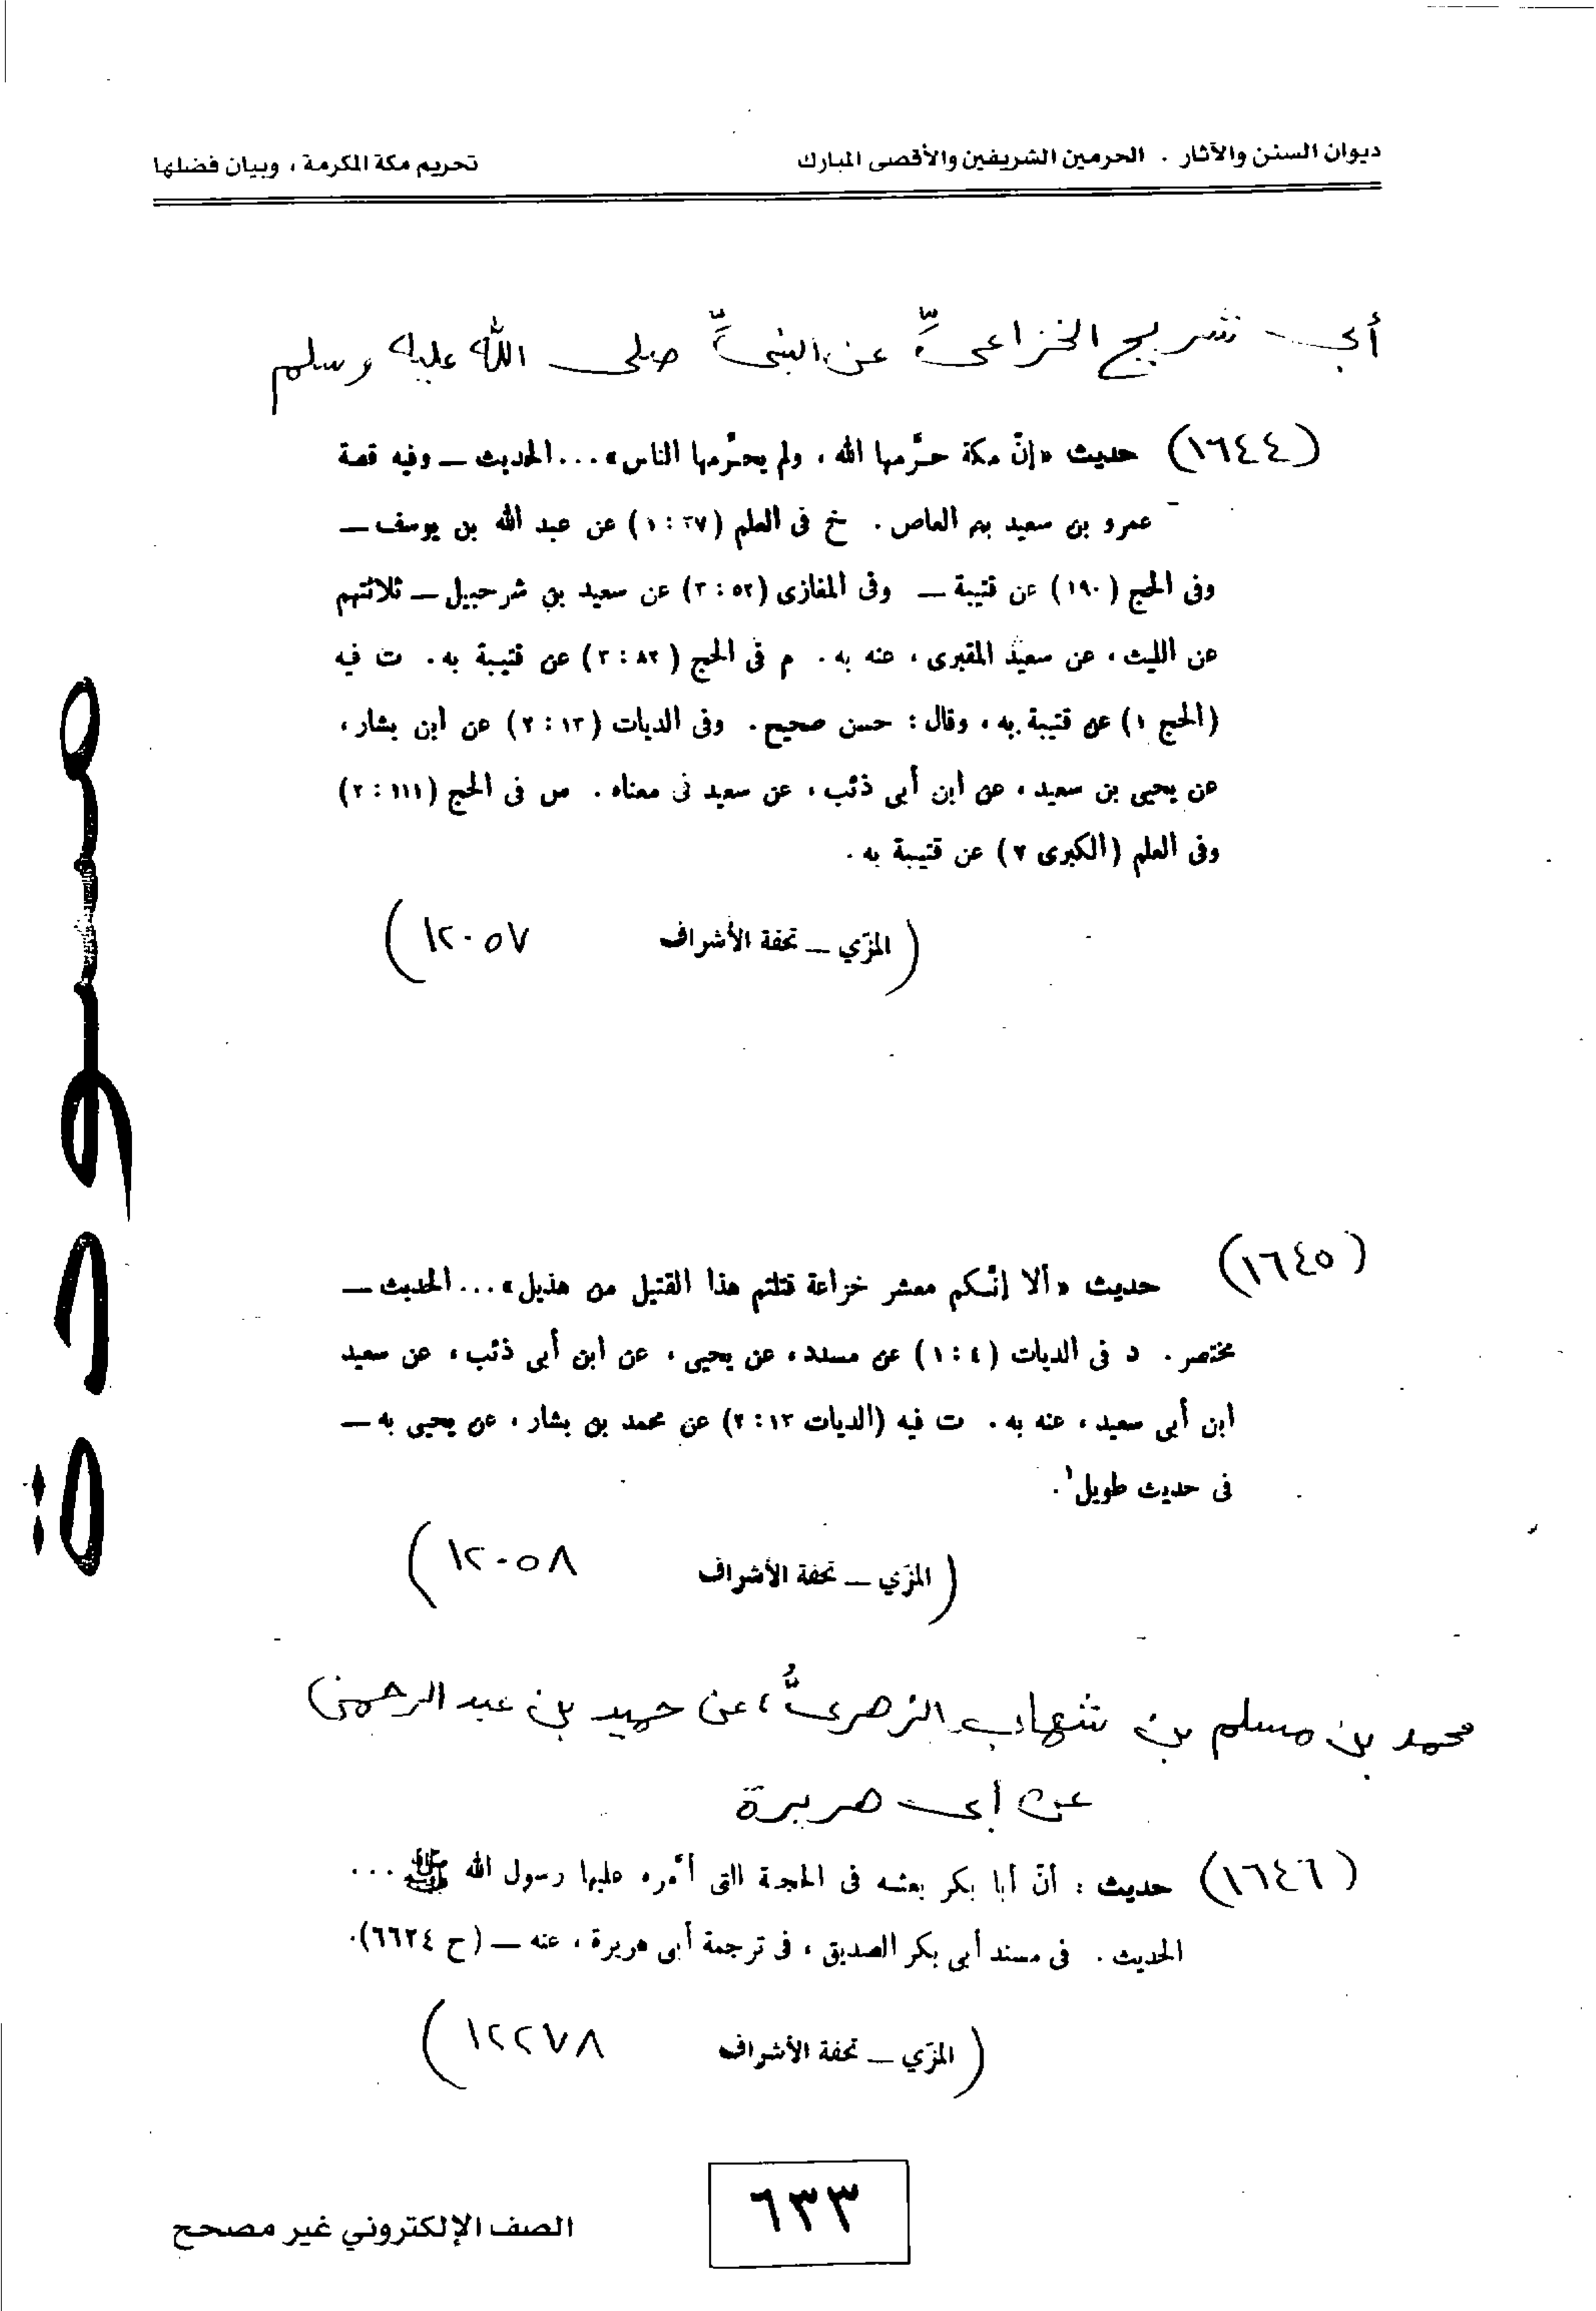 ديوان السنن والآثار . الحرمين الشريفين والأقصى المبارك
تحريم مكة المكرمة ، وبيان فضلها
أبي شريح الخزاعيِّ عن النبيِّ صلى الله عليه وسلم
(١٦٤٤) حديث «إنّ مكة حرّمها الله ، ولم يحرّمها الناس» ... الحديث — وفيه قصة
عمرو بن سعيد بن العاص . خ فى العلم (٣٧ : ١) عن عبد الله بن يوسف —
وفى الحج (١٩٠) عن قتيبة — وفى المغازى (٥٢ : ٣) عن سعيد بن شرحبيل — ثلاثتهم
عن الليث ، عن سعيد المقبرى ، عنه به . م فى الحج (٨٢ : ٣) عن قتيبة به . ت فيه
(الحج ١) عن قتيبة به ، وقال : حسن صحيح . وفى الديات (١٣ : ٢) عن ابن بشار ،
عن يحيى بن سعيد ، عن ابن أبى ذئب ، عن سعيد فى معناه . س فى الحج (١١١ : ٢)
وفى العلم (الكبرى ٧) عن قتيبة به .
(المزّي — تحفة الأشراف ١٢٠٥٧)
(١٦٤٥) حديث «ألا إنّكم معشر خزاعة قتلتم هذا القتيل من هذيل» ... الحديث —
مختصر . د فى الديات (٤ : ١) عن مسدد ، عن يحيى ، عن ابن أبى ذئب ، عن سعيد
ابن أبى سعيد ، عنه به . ت فيه (الديات ١٣ : ٢) عن محمد بن بشار ، عن يحيى به —
فى حديث طويل¹ .
(المزّي — تحفة الأشراف ١٢٠٥٨)
محمد بن مسلم بن شهاب الزهريُّ ، عن حميد بن عبد الرحمن
عن أبي هريرة
(١٦٤٦) حديث : أنّ أبا بكر بعثه فى الحجة التى أمّره عليها رسول الله ﷺ ...
الحديث . فى مسند أبى بكر الصديق ، فى ترجمة أبى هريرة ، عنه — (ح ٦٦٢٤) .
(المزّي — تحفة الأشراف ١٢٢٧٨)
٦٣٣
الصف الإلكتروني غير مصحح
مسودة